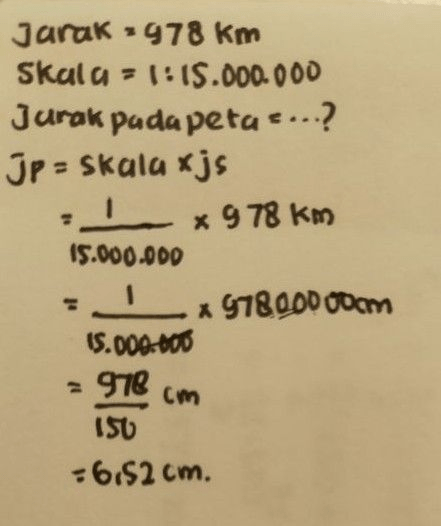 Jarak = 978 km
Skala = 1:15.000.000
Jarak pada peta = ...?
jp = skala x js
= 1/15.000.000 x 978 km
= 1/15.000.000 x 97800000 cm
= 978/150 cm
= 6,52 cm.